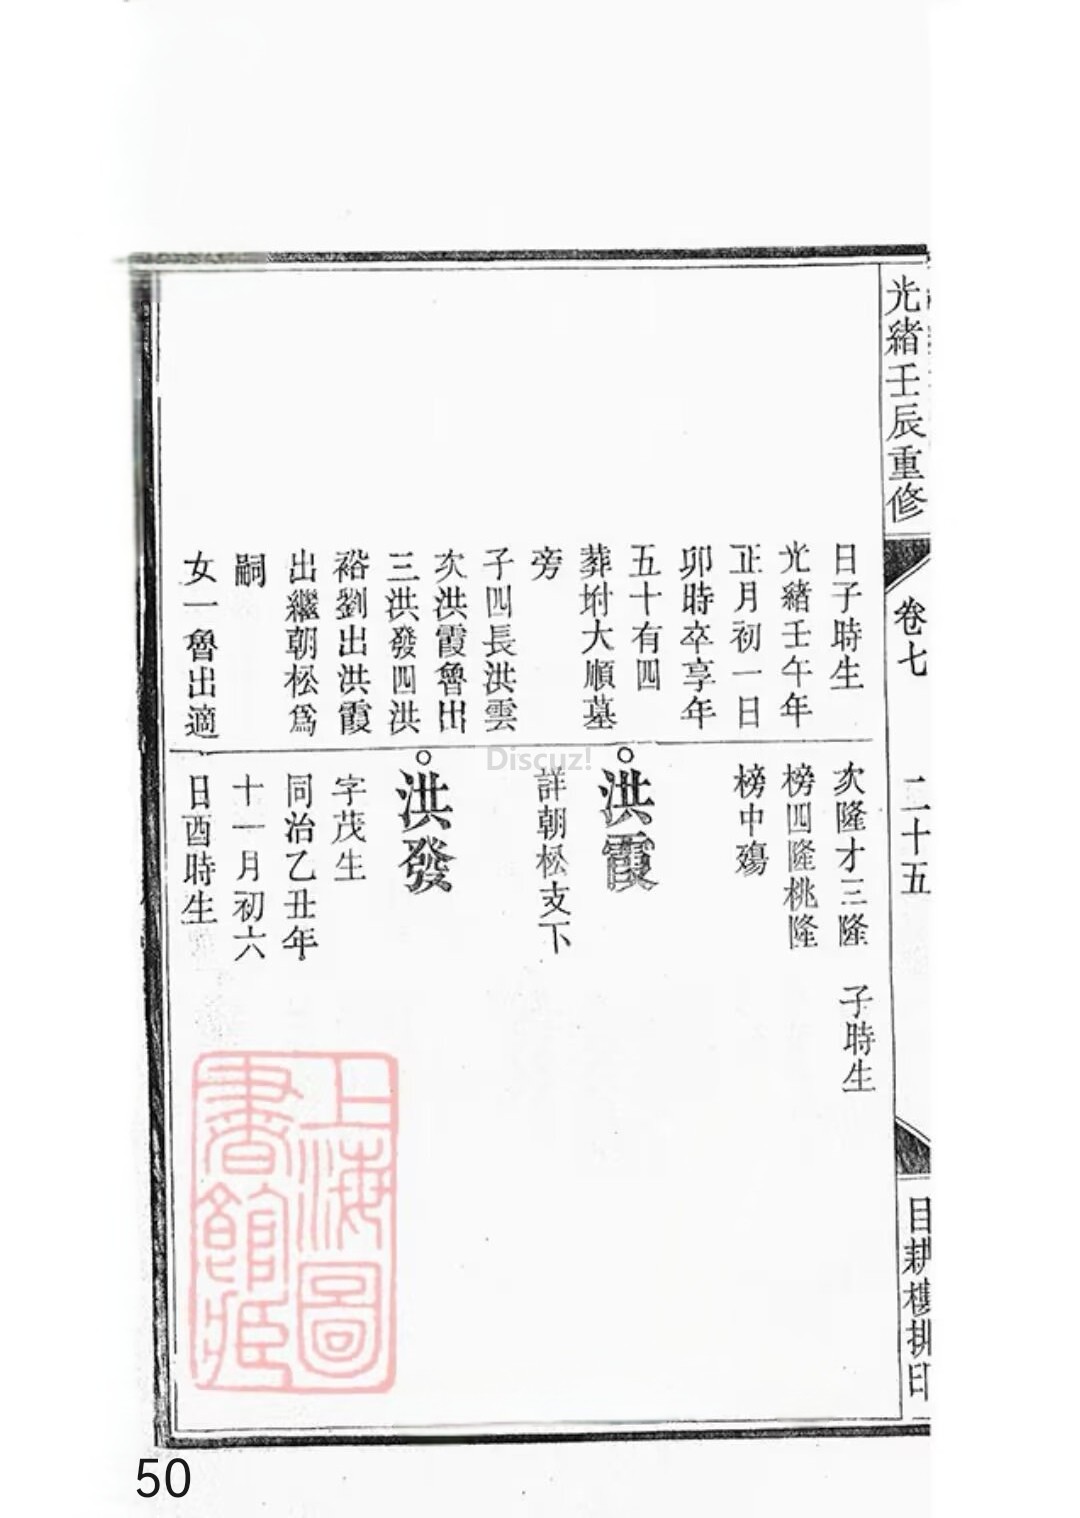 光緒壬辰重修
卷七
二十五
目耕樓排印
日子時生
光緒壬午年
正月初一日
卯時卒享年
五十有四
葬坿大順墓
旁
子四長洪雲
次洪霞魯出
三洪發四洪
裕劉出洪霞
出繼朝松爲
嗣
女一魯出適
次隆才三隆
榜四隆桃隆
榜中殤
子時生
洪霞
詳朝松支下
洪發
字茂生
同治乙丑年
十一月初六
日酉時生
上海圖
書館藏
Discuz!
50